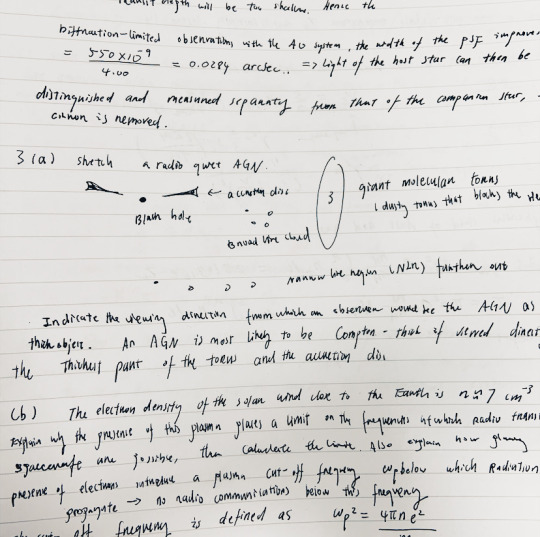 will be too shallow. Hence the
Diffraction-limited observations with the AO system, the width of the PSF improves
= 550x10⁻⁹ / 4.00 = 0.0284 arcsec.. => Light of the host star can then be
distinguished and measured separately from that of the companion star,
is removed.
3 (a) sketch a radio quiet AGN.
← accretion disc
Black hole
Broad line cloud
3
giant molecular torus
(dusty torus that blocks the
Narrow line region (NLR) further out
Indicate the viewing direction from which an observer would see the AGN as
thick object. An AGN is most likely to be Compton-thick if viewed
the thickest part of the torus and the accretion disc
(b) The electron density of the solar wind close to the Earth is n ≈ 7 cm⁻³
Explain why the presence of this plasma places a limit on the frequencies at which radio
are possible, then calculate the limit. Also explain how
presence of electrons introduce a plasma cut-off frequency ωp below which Radiation
propagate → no radio communications below this frequency
off frequency is defined as ωp² = 4πne²